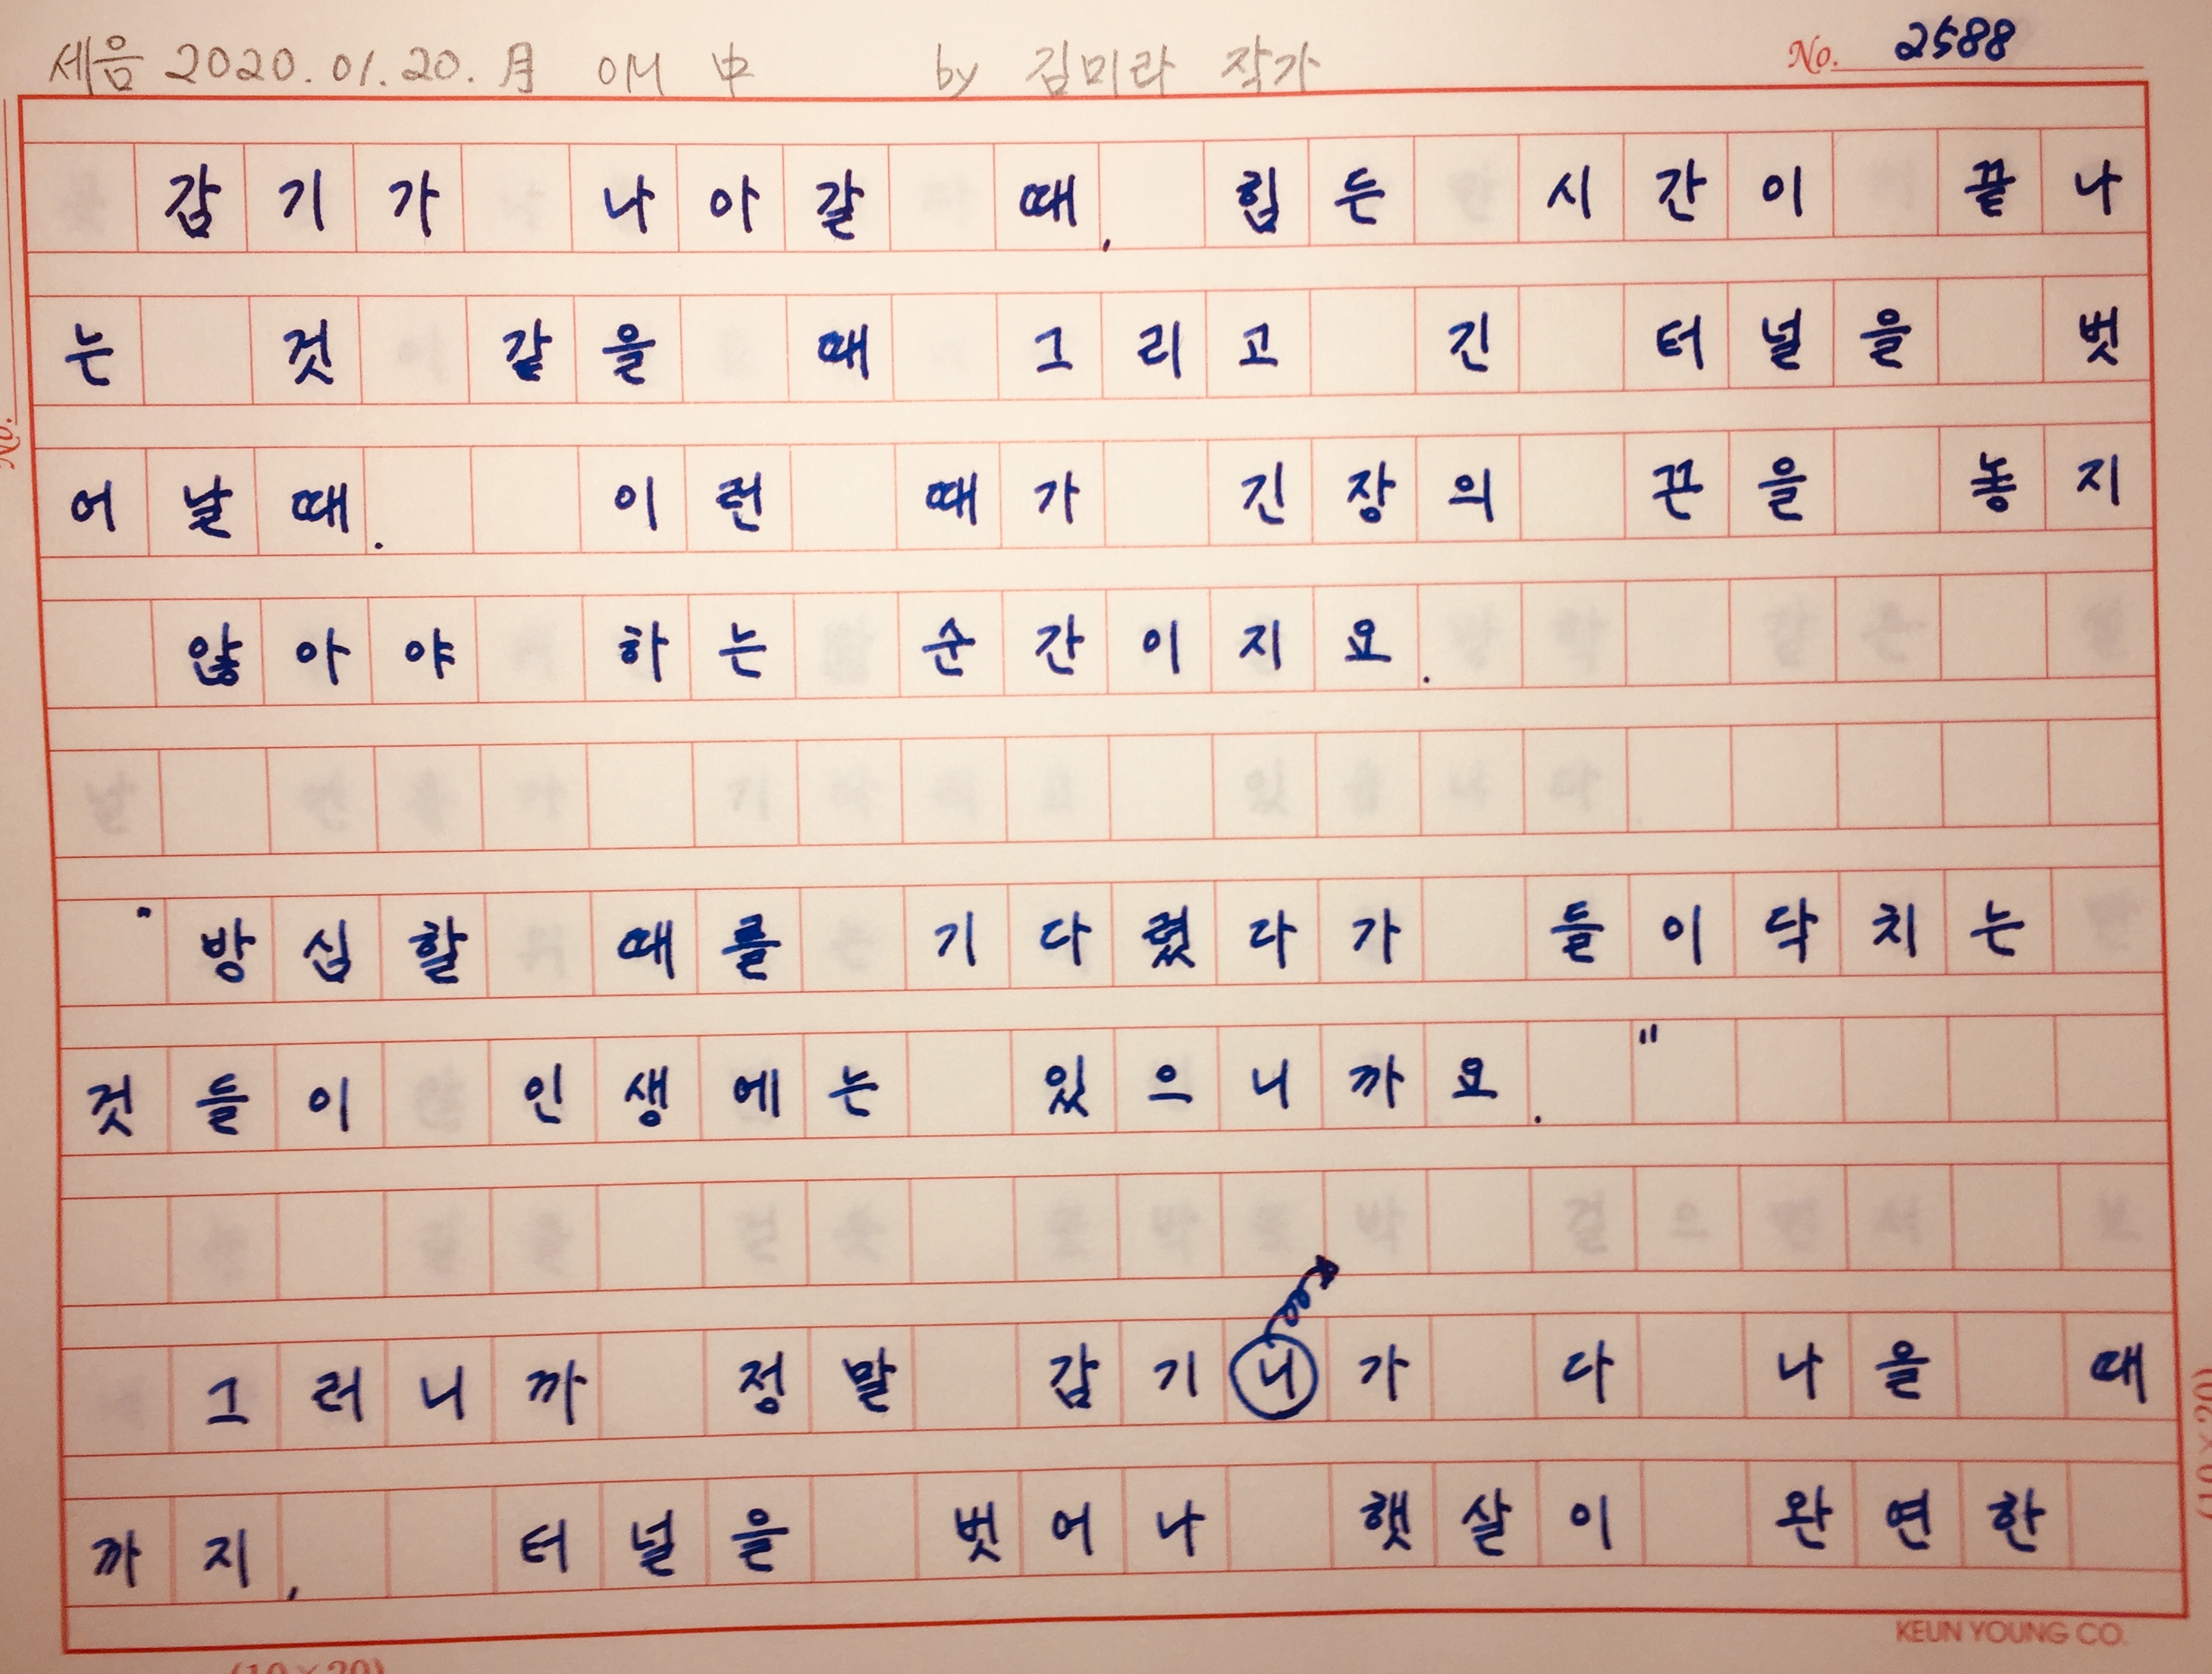 세음 2020.01.20.月 OM 中 by 김미라 작가
No. 2588
감기가 나아갈 때, 힘든 시간이 끝나
는 것 같을 때 그리고 긴 터널을 벗
어날때. 이런 때가 긴장의 끈을 놓지
않아야 하는 순간이지요.
"방심할 때를 기다렸다가 들이닥치는
것들이 인생에는 있으니까요."
그러니까 정말 감기니가 다 나을 때
까지, 터널을 벗어나 햇살이 완연한
KEUN YOUNG CO.
(10×20)